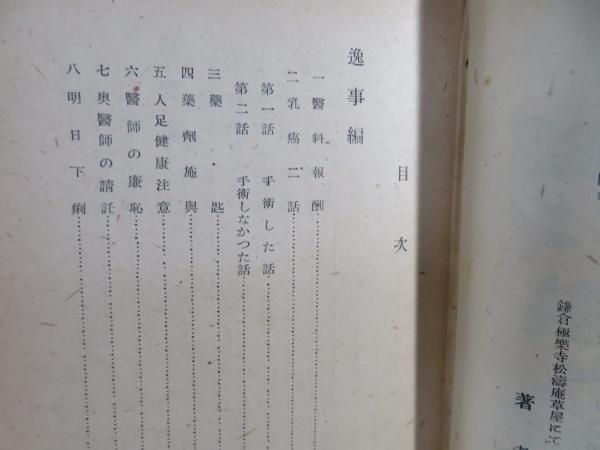 鎌倉極樂寺松濤庵草屋にて
著
目次
逸事編
一 醫料報酬
二 乳癌二話
第一話 手術した話
第二話 手術しなかつた話
三 藥・匙
四 藥劑施與
五 人足健康注意
六 醫師の廉恥
七 奥醫師の請託
八 明日下痢